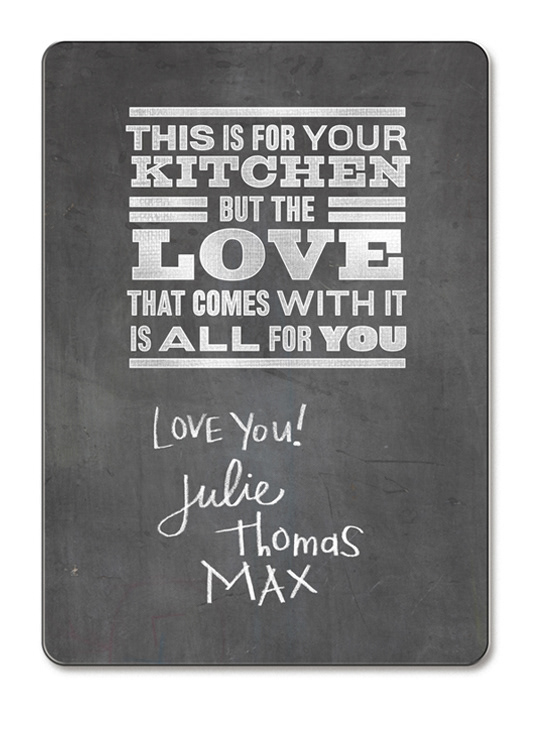 THIS IS FOR YOUR
KITCHEN
BUT THE
LOVE
THAT COMES WITH IT
IS ALL FOR YOU
LOVE YOU!
Julie
Thomas
MAX